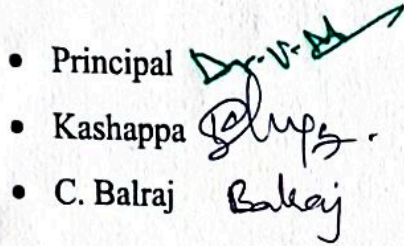 • Principal
• Kashappa
• C. Balraj Balraj